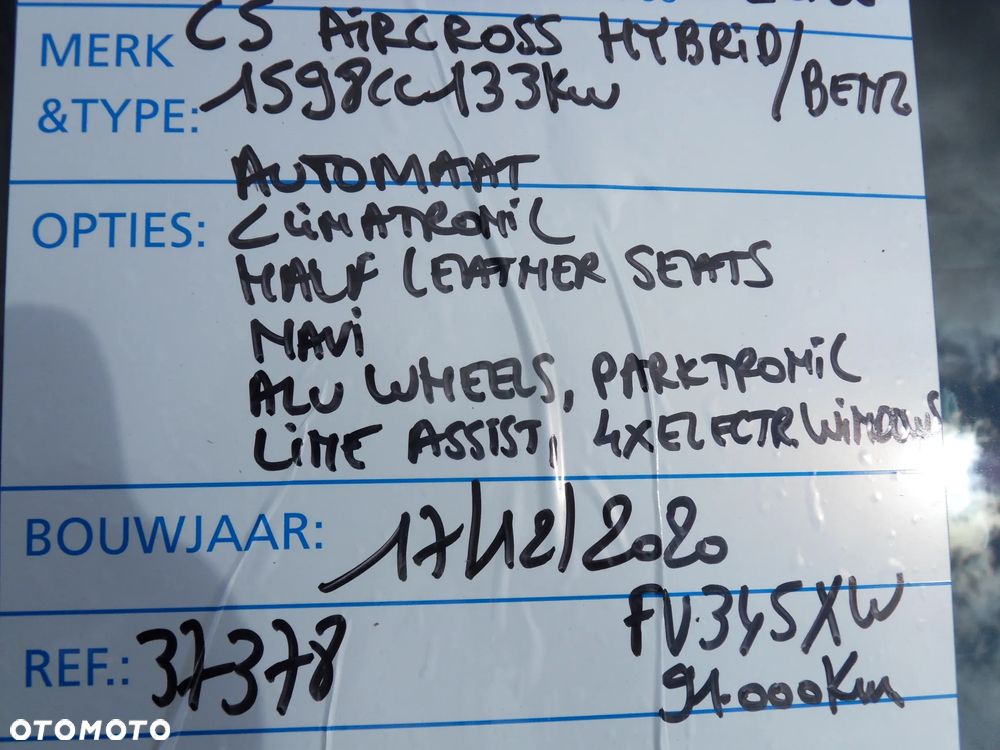 MERK C5 AIRCROSS HYBRID/
&TYPE: 1598cc 133Kw BENZ
AUTOMAAT
OPTIES: CLIMATRONIC
HALF LEATHER SEATS
NAVI
ALU WHEELS, PARKTRONIC
LINE ASSIST, 4XELECTR WINDOWS
BOUWJAAR: 17/12/2020
FV.345XW
REF.: 37378
91.000Km
OTOMOTO